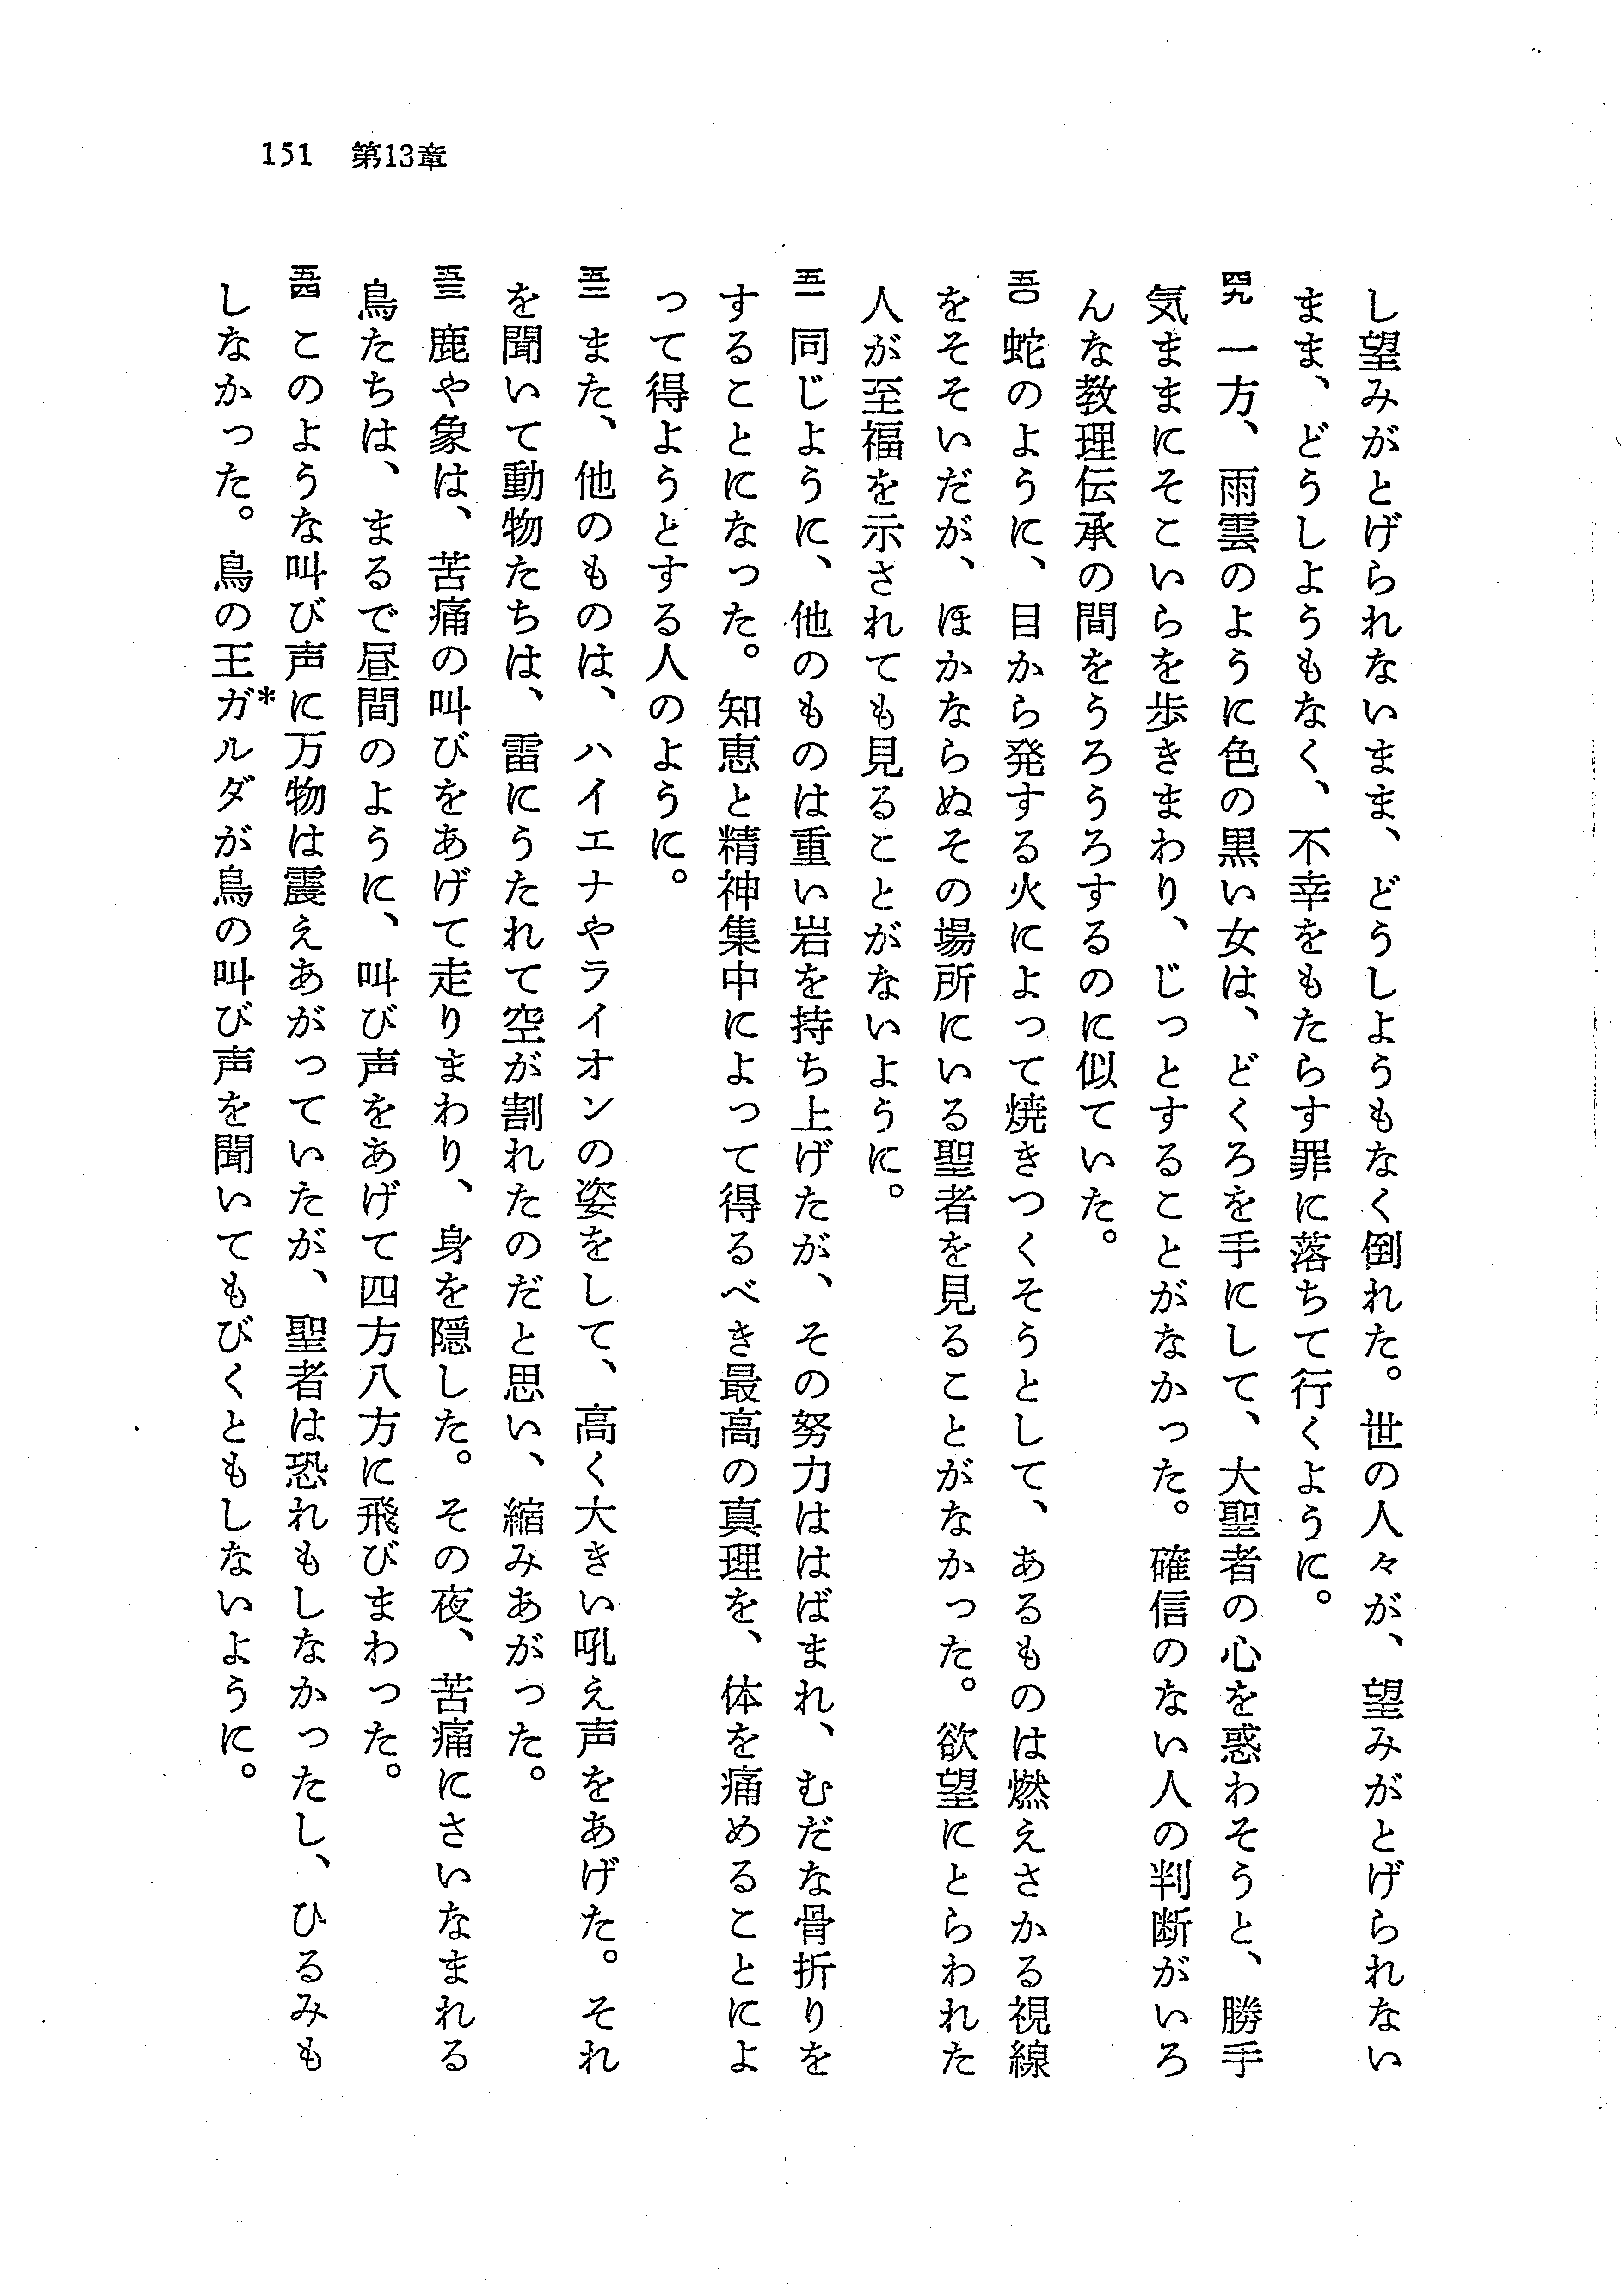 151 第13章
し望みがとげられないまま、どうしようもなく倒れた。世の人々が、望みがとげられない
まま、どうしようもなく、不幸をもたらす罪に落ちて行くように。
四九 一方、雨雲のように色の黒い女は、どくろを手にして、大聖者の心を惑わそうと、勝手
気ままにそこいらを歩きまわり、じっとすることがなかった。確信のない人の判断がいろ
んな教理伝承の間をうろうろするのに似ていた。
五〇 蛇のように、目から発する火によって焼きつくそうとして、あるものは燃えさかる視線
をそそいだが、ほかならぬその場所にいる聖者を見ることがなかった。欲望にとらわれた
人が至福を示されても見ることがないように。
五一 同じように、他のものは重い岩を持ち上げたが、その努力ははばまれ、むだな骨折りを
することになった。知恵と精神集中によって得るべき最高の真理を、体を痛めることによ
って得ようとする人のように。
五二 また、他のものは、ハイエナやライオンの姿をして、高く大きい吼え声をあげた。それ
を聞いて動物たちは、雷にうたれて空が割れたのだと思い、縮みあがった。
五三 鹿や象は、苦痛の叫びをあげて走りまわり、身を隠した。その夜、苦痛にさいなまれる
鳥たちは、まるで昼間のように、叫び声をあげて四方八方に飛びまわった。
五四 このような叫び声に万物は震えあがっていたが、聖者は恐れもしなかったし、ひるみも
しなかった。鳥の王ガ*ルダが鳥の叫び声を聞いてもびくともしないように。